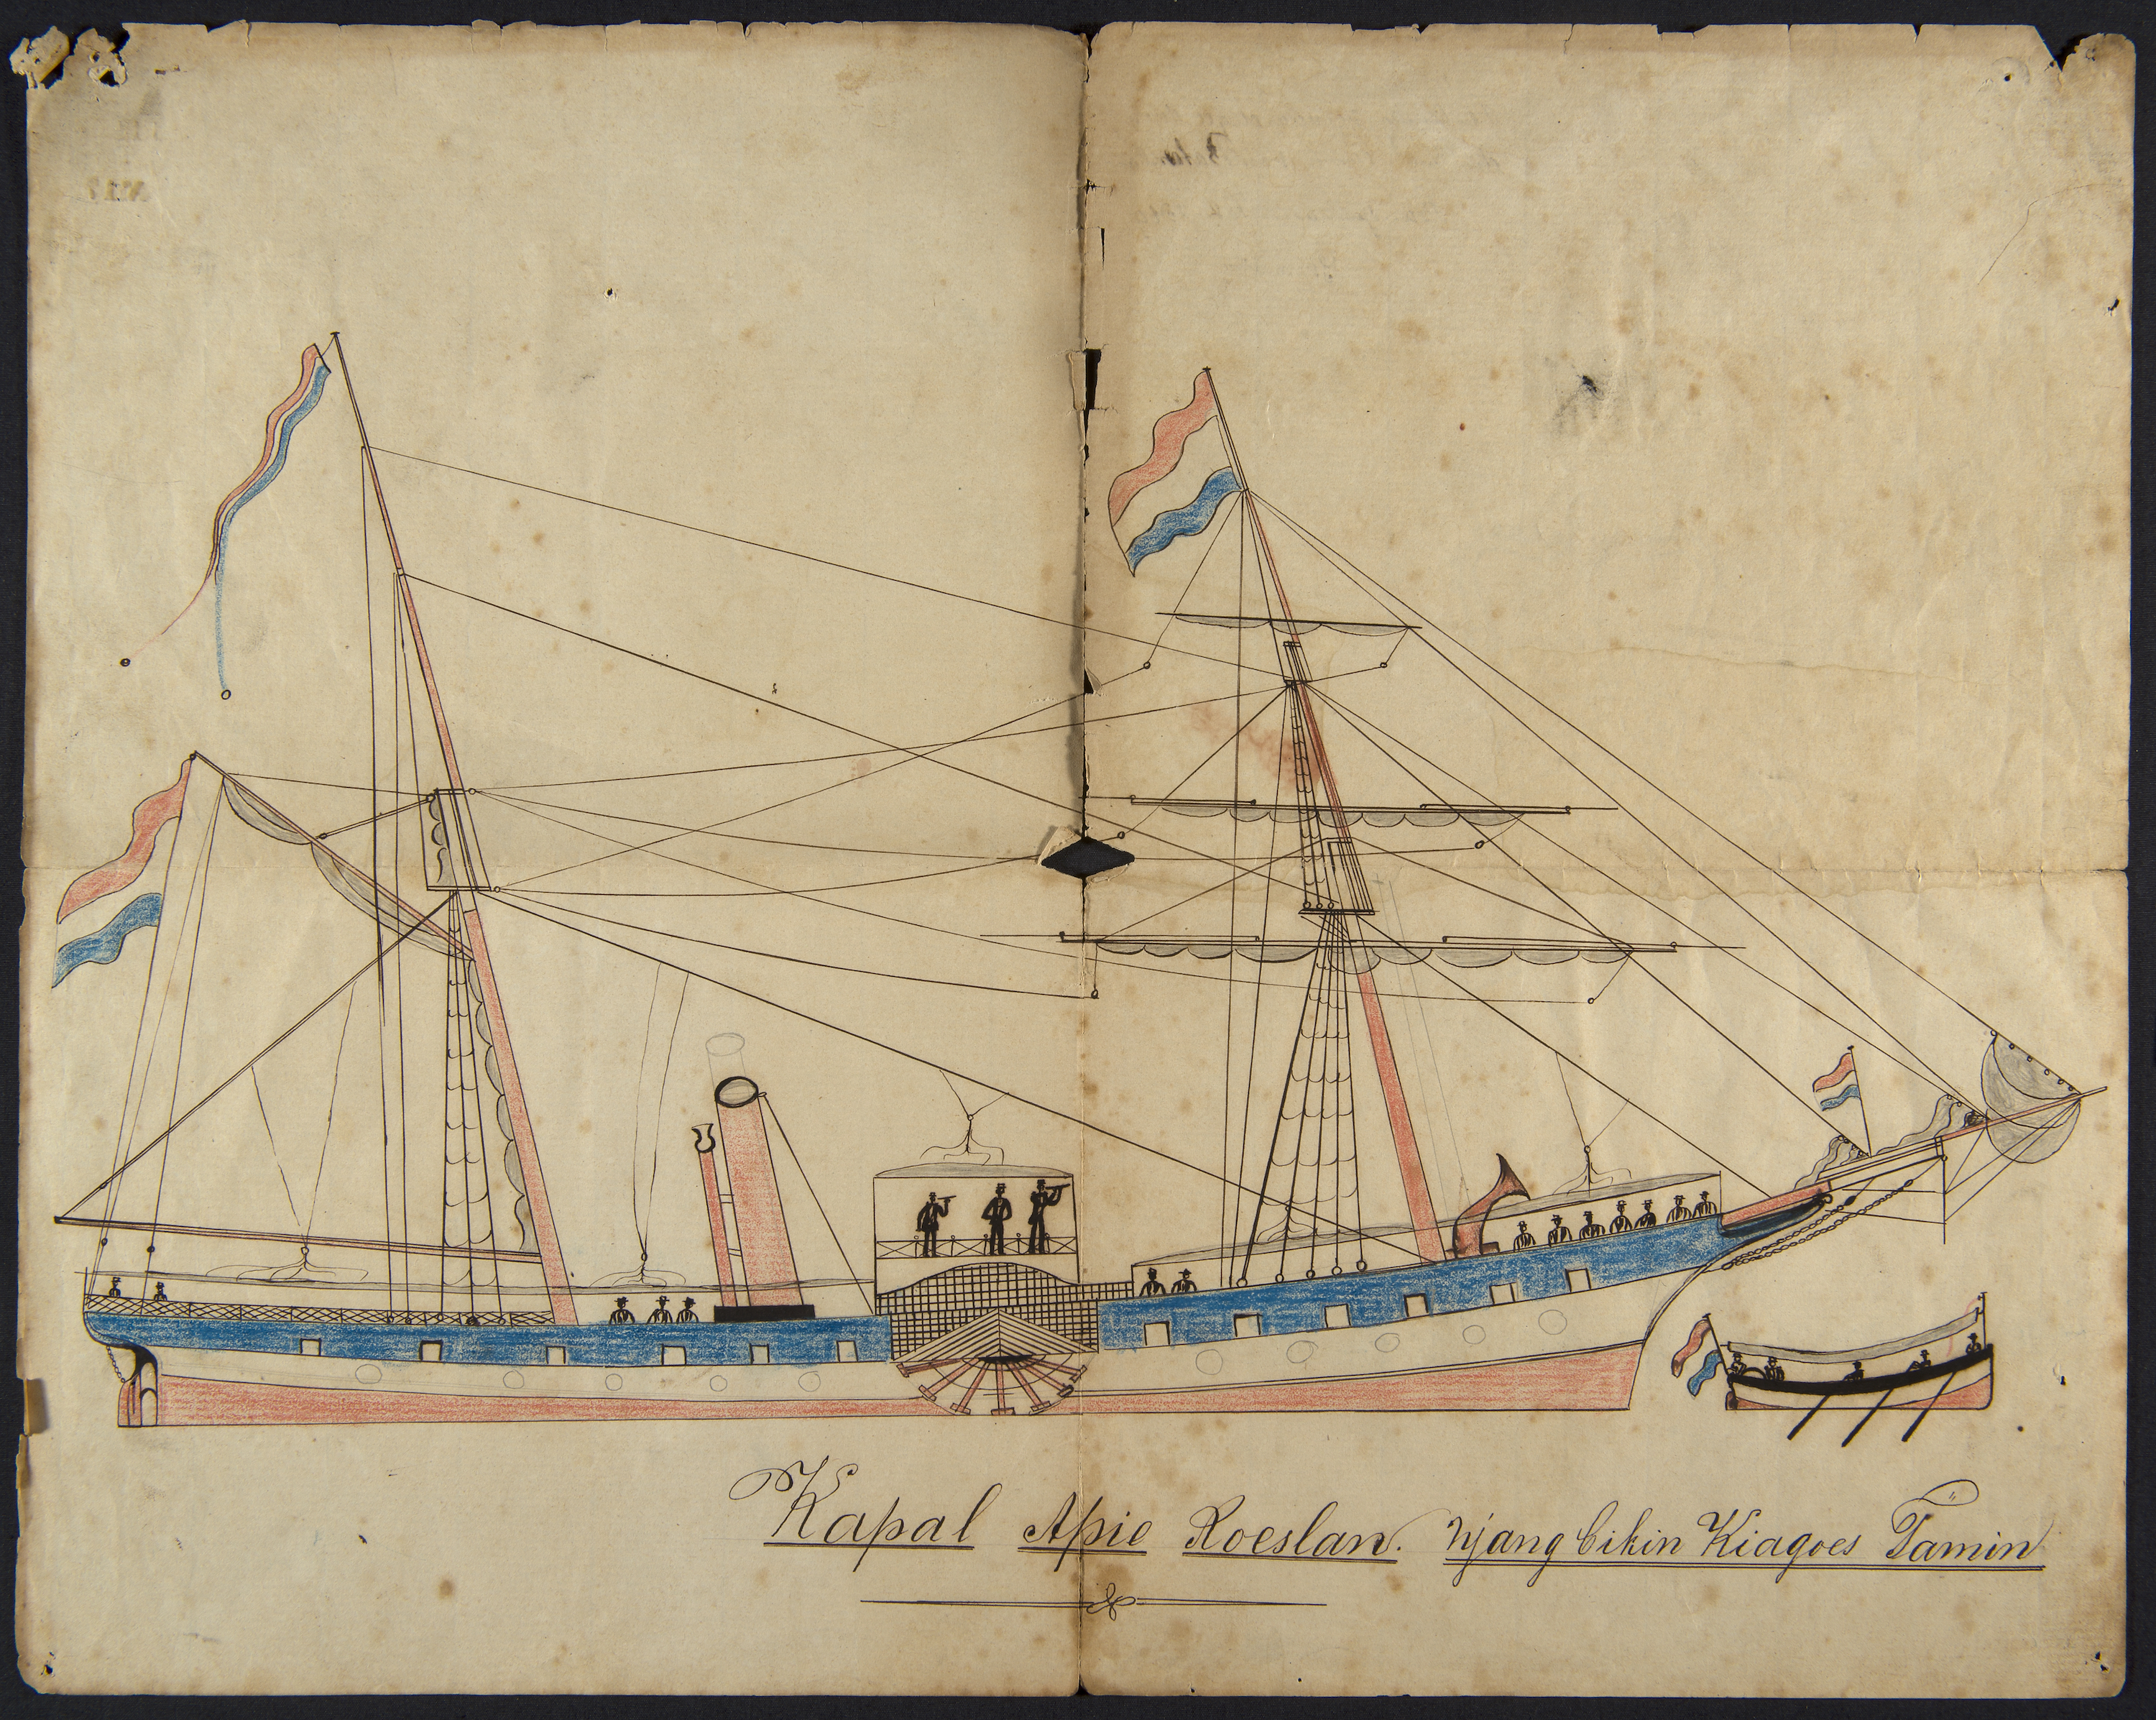 Kapal Apie Roeslan. njang bikin Kiagoes Tamin